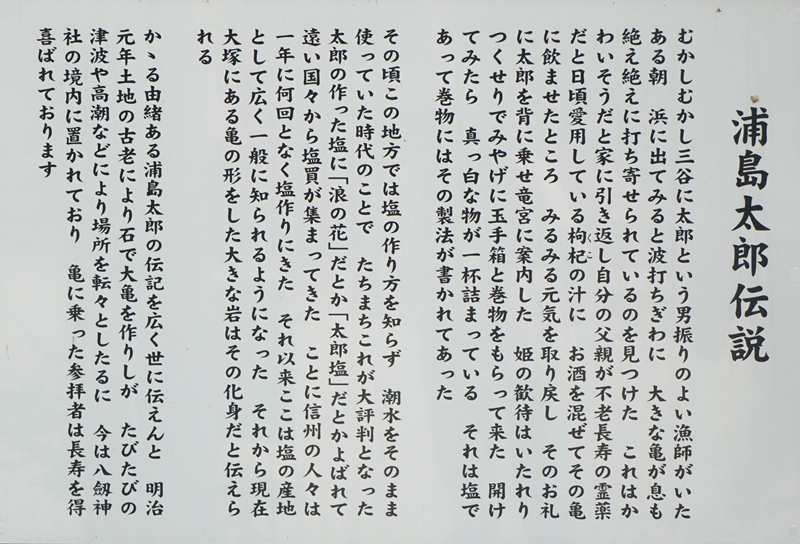 浦島太郎伝説
むかしむかし三谷に太郎という男振りのよい漁師がいた
ある朝　浜に出てみると波打ちぎわに　大きな亀が息も
絶え絶えに打ち寄せられているのを見つけた　これはか
わいそうだと家に引き返し自分の父親が不老長寿の霊薬
だと日頃愛用している枸杞の汁に　お酒を混ぜてその亀
に飲ませたところ　みるみる元気を取り戻し　そのお礼
に太郎を背に乗せ竜宮に案内した　姫の歓待はいたれり
つくせりでみやげに玉手箱と巻物をもらって来た　開け
てみたら　真っ白な物が一杯詰まっている　それは塩で
あって巻物にはその製法が書かれてあった
その頃この地方では塩の作り方を知らず　潮水をそのまま
使っていた時代のことで　たちまちこれが大評判となった
太郎の作った塩に「浪の花」だとか「太郎塩」だとかよばれて
遠い国々から塩買が集まってきた　ことに信州の人々は
一年に何回となく塩作りにきた　それ以来ここは塩の産地
として広く一般に知られるようになった　それから現在
大塚にある亀の形をした大きな岩はその化身だと伝えら
れる
かゝる由緒ある浦島太郎の伝記を広く世に伝えんと　明治
元年土地の古老により石で大亀を作りしが　たびたびの
津波や高潮などにより場所を転々としたるに　今は八劔神
社の境内に置かれており　亀に乗った参拝者は長寿を得
喜ばれております